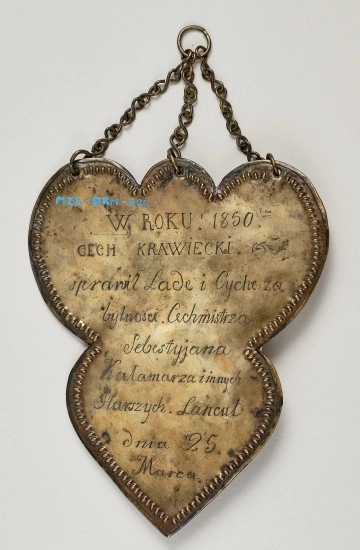 W. ROKU! 1850
CECH KRAWIECKI.
sprawił Lade i Cyche za
bytności. Cechmistrza
Sebestyjana
Kałamarza i innych
Starszych. Lancut
dnia 25
Marca.